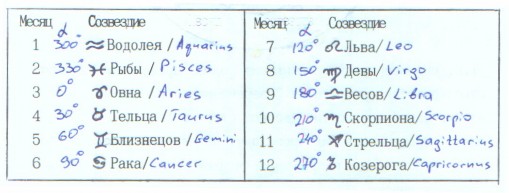 Месяц α Созвездие
1 300° ♒ Водолея / Aquarius
2 330° ♓ Рыбы / Pisces
3 0° ♈ Овна / Aries
4 30° ♉ Тельца / Taurus
5 60° ♊ Близнецов / Gemini
6 90° ♋ Рака / Cancer
Месяц α Созвездие
7 120° ♌ Льва / Leo
8 150° ♍ Девы / Virgo
9 180° ♎ Весов / Libra
10 210° ♏ Скорпиона / Scorpio
11 240° ♐ Стрельца / Sagittarius
12 270° ♑ Козерога / Capricornus